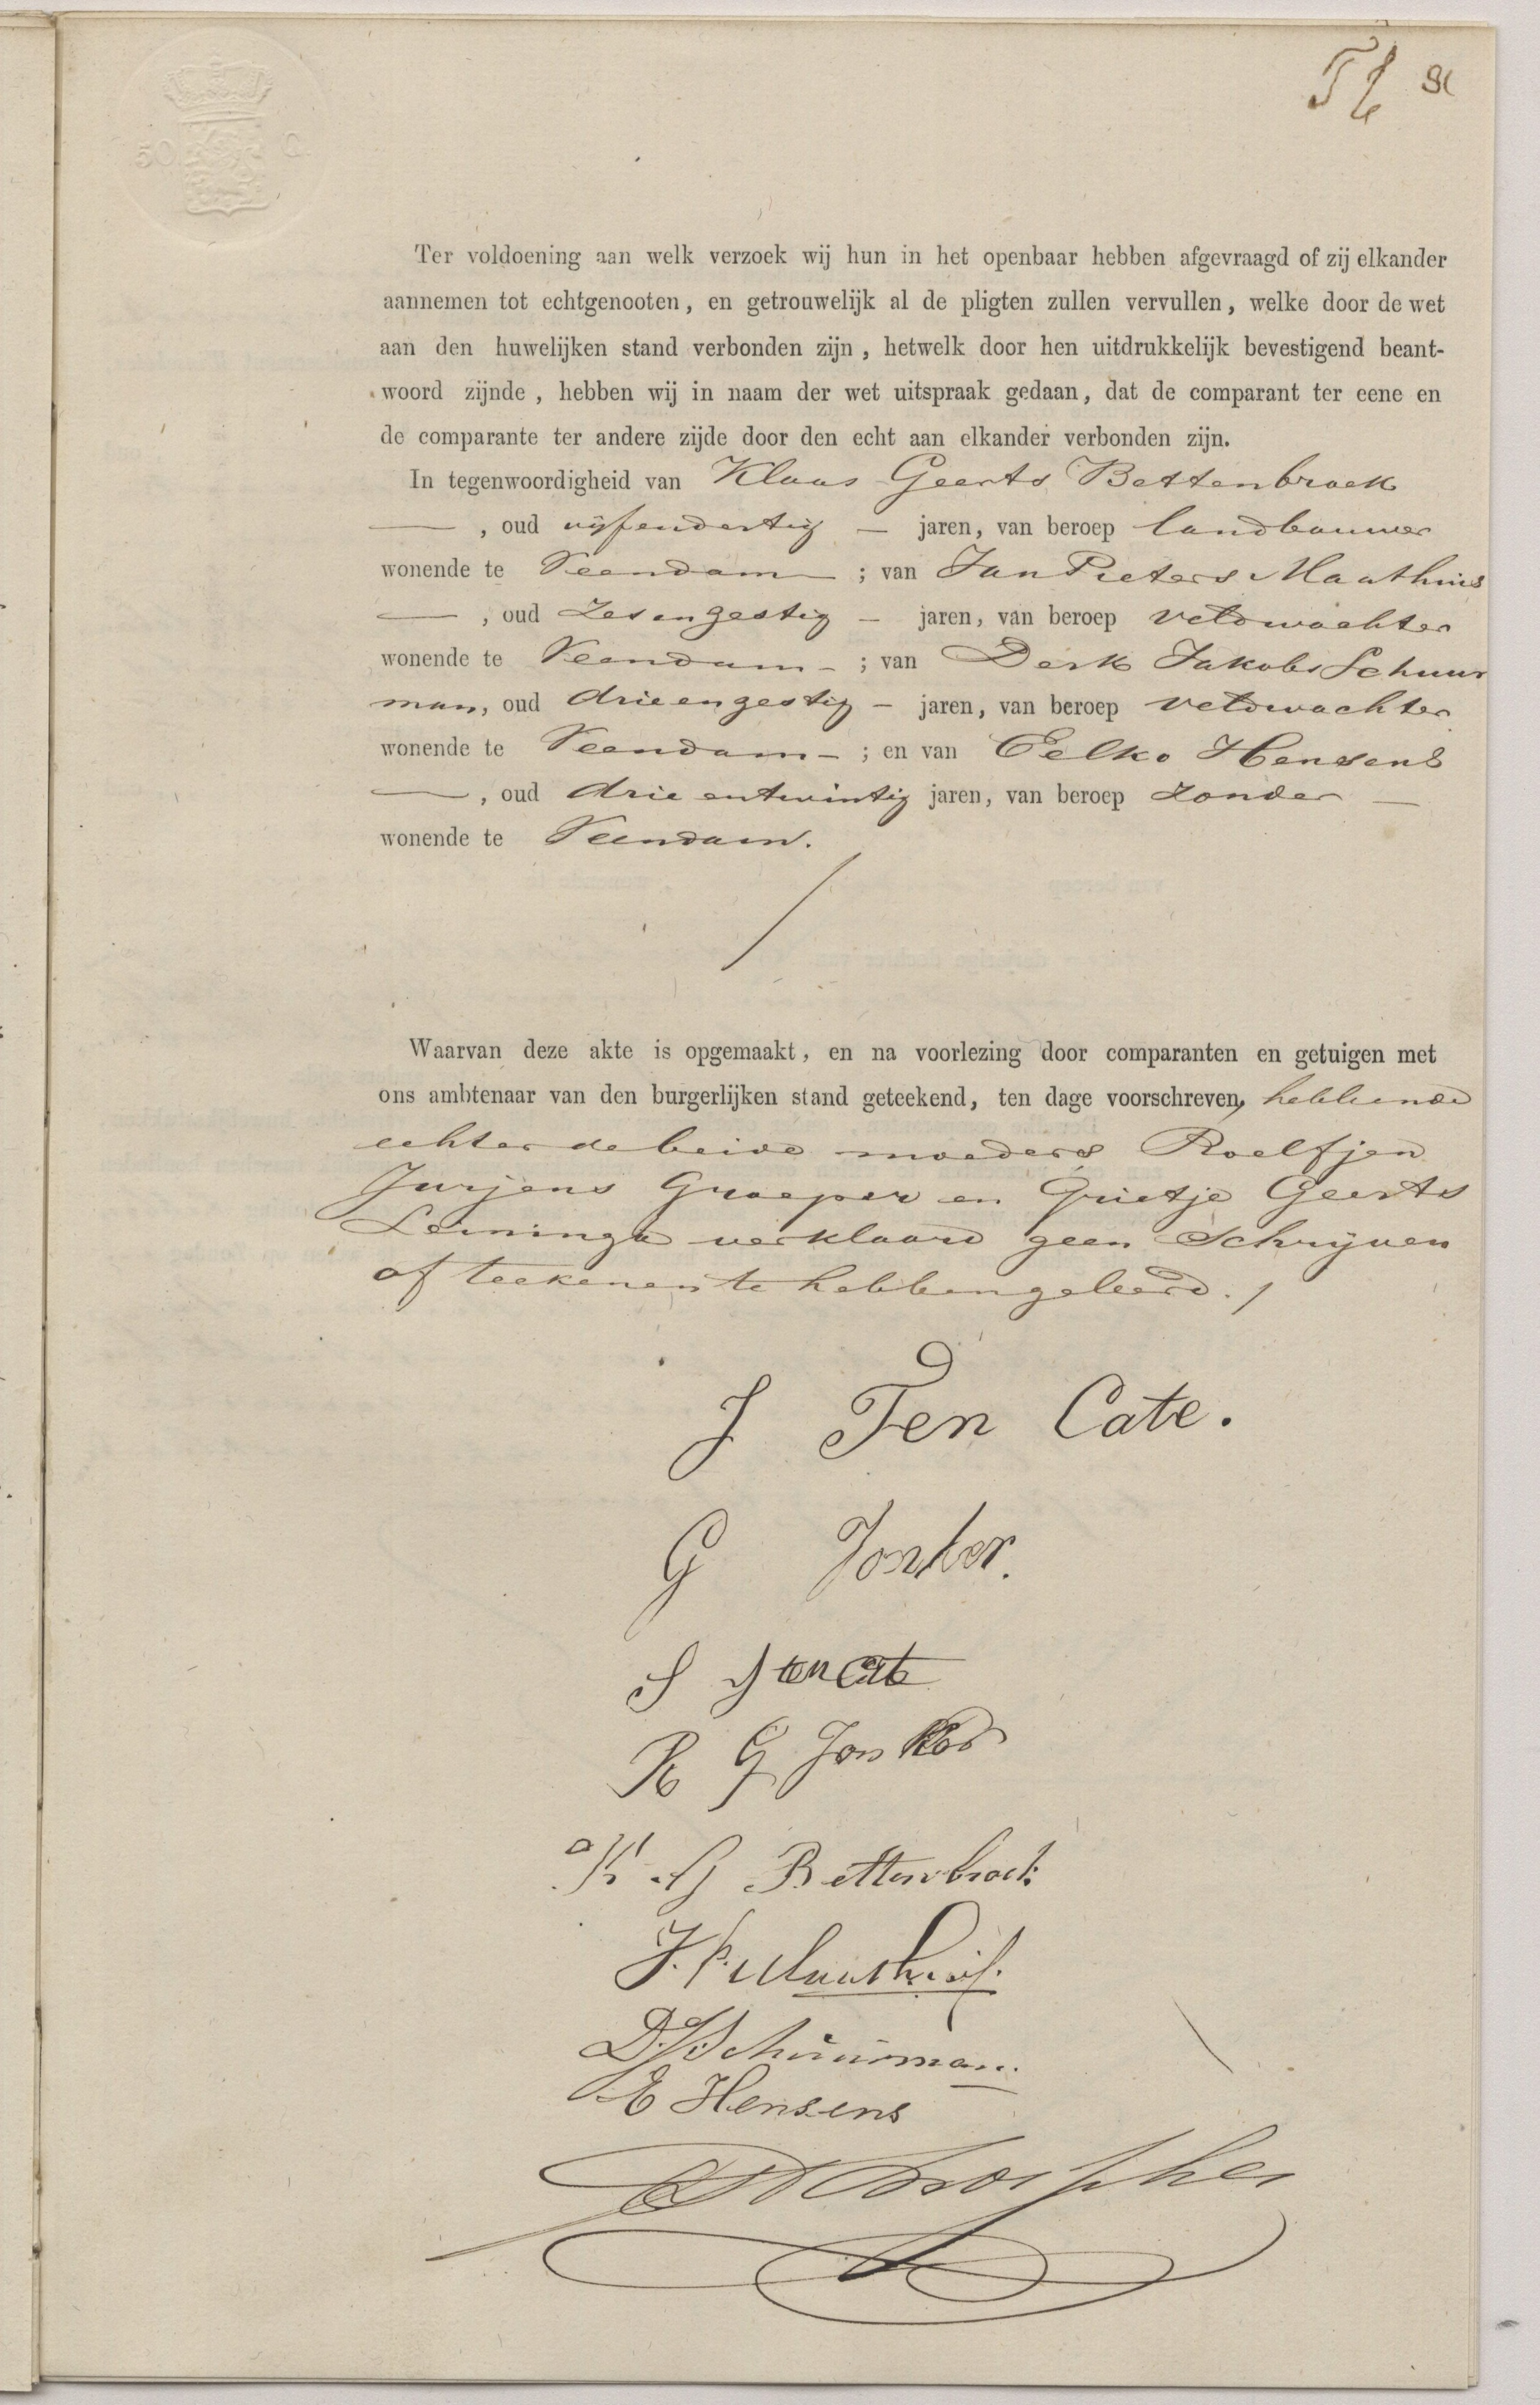 81
50 C.
Ter voldoening aan welk verzoek wij hun in het openbaar hebben afgevraagd of zij elkander
aannemen tot echtgenooten, en getrouwelijk al de pligten zullen vervullen, welke door de wet
aan den huwelijken stand verbonden zijn, hetwelk door hen uitdrukkelijk bevestigend beant-
woord zijnde, hebben wij in naam der wet uitspraak gedaan, dat de comparant ter eene en
de comparante ter andere zijde door den echt aan elkander verbonden zijn.
In tegenwoordigheid van Klaas Geerts Bettenbroek
—, oud vijfendertig — jaren, van beroep landbouwer
wonende te Veendam —; van Jan Pieters Maathuis
—, oud zesenzestig — jaren, van beroep veldwachter
wonende te Veendam —; van Derk Jakobs Schuur
man, oud drieenzestig — jaren, van beroep veldwachter
wonende te Veendam —; en van Eelko Hensens
—, oud drie entwintig jaren, van beroep zonder —
wonende te Veendam.
Waarvan deze akte is opgemaakt, en na voorlezing door comparanten en getuigen met
ons ambtenaar van den burgerlijken stand geteekend, ten dage voorschreven, hebbende
echter de beide moeders Roelfjen
Jurjens Graeper en Grietje Geerts
Leininga verklaard geen schrijven
of teekenen te hebben geleerd.
J Ten Cate.
G Jonker.
S J ten Cate
R G Jonker
K G Bettenbroek
J. P. Maathuis.
D. J. Schuurman.
E Hensens